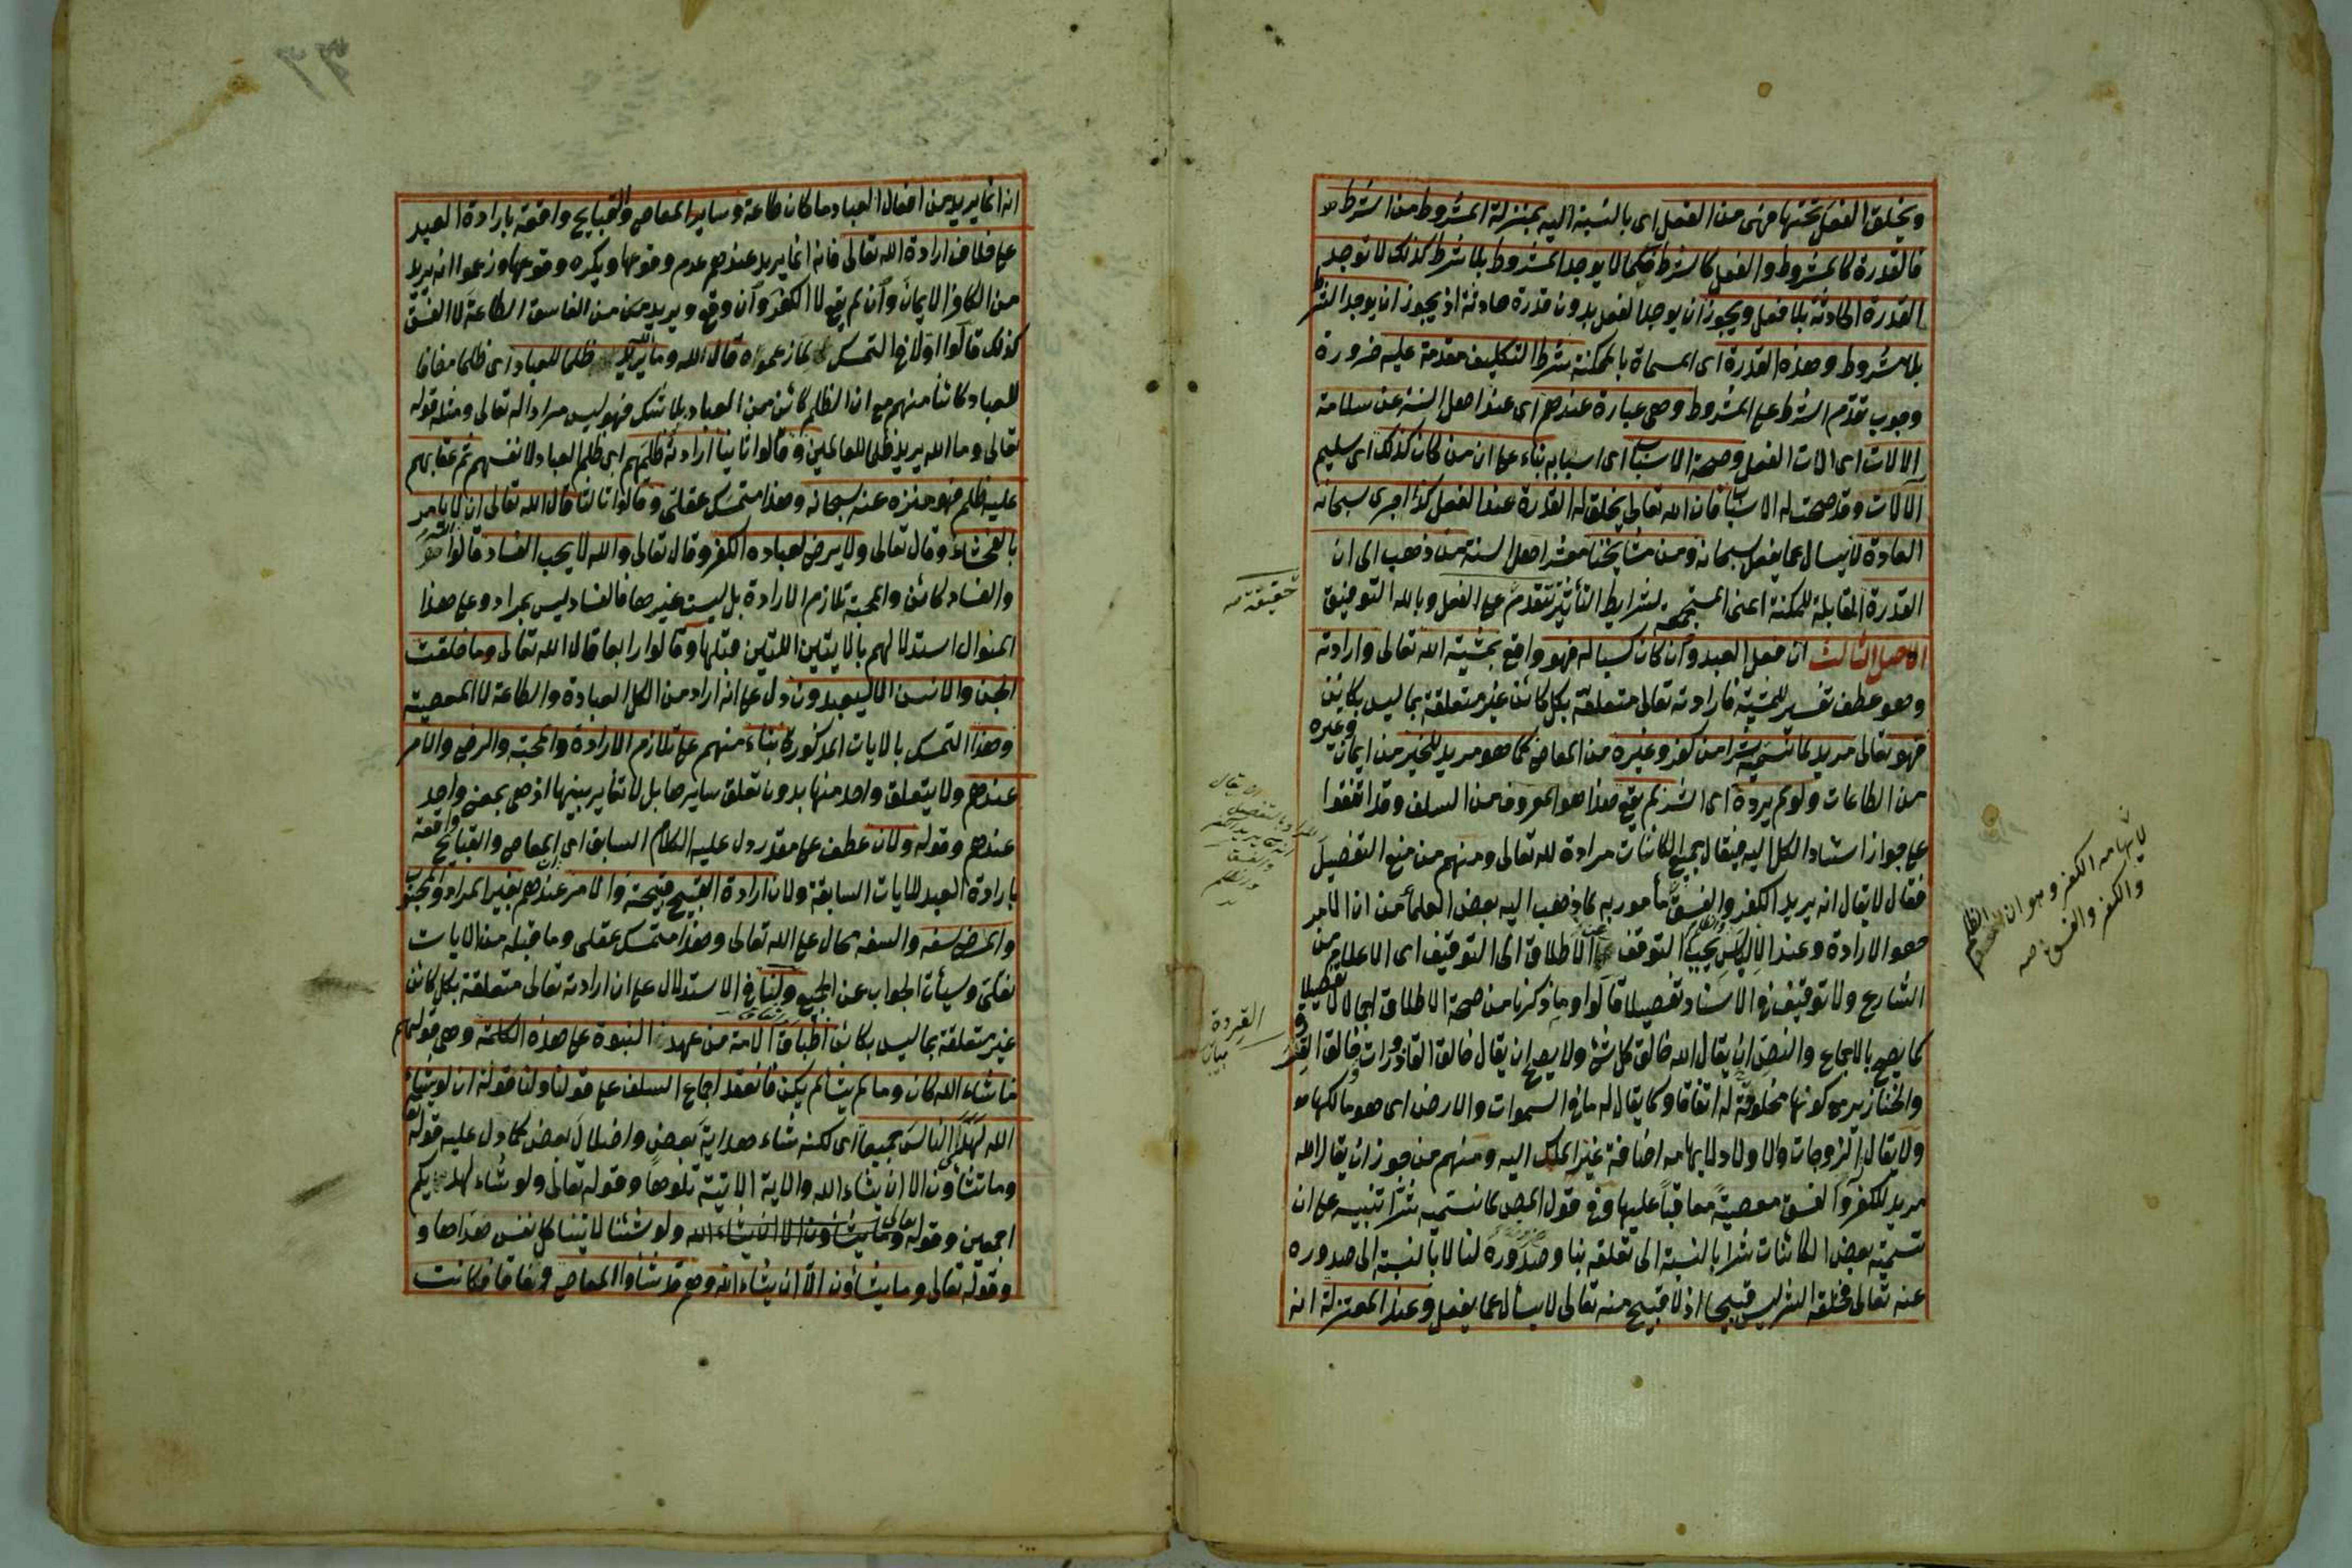 ويخلق الفعل تحتها فهى من الفعل اى بالنسبة اليه بمنزلة المشروط من الشرط
فالقدرة كالمشروط والفعل كالشرط فكما لا يوجد المشروط بلا شرط كذلك لا توجد
القدرة الحادثة بلا فعل ويجوز ان يوجد الفعل بدون قدرة حادثة اذ يجوز ان يوجد الشرط
بلا مشروط وهذه القدرة اى المسماة بالممكنة شرط التكليف مقدمة عليه ضرورة
وجوب تقدم الشرط على المشروط وهى عبارة عندهم اى عند اهل السنة عن سلامة
الالات اى الات الفعل وصحة الاسباب اى اسبابه بناء على ان من كان كذلك اى سليم
الالات وقد صحت له الاسباب فان الله تعالى يخلق له القدرة عند الفعل كذا اجرى سبحانه
العادة لا يسال عما يفعل سبحانه ومن مشايخنا معشر اهل السنة من ذهب الى ان
القدرة المقابلة للممكنة اعنى المستجمعة لشرايط التأثير تتقدم على الفعل وبالله التوفيق
حقيقة
الاصل الثالث ان فعل العبد وان كان كسبا له فهو واقع بمشية الله تعالى وارادته
وهو عطف تفسير للمشية فارادته تعالى متعلقة بكل كائن غير متعلقة بما ليس بكائن
فهو تعالى مريد لما نسميه شرا من كفر وغيره من المعاصى كما هو مريد للخير من ايمان وغيره
من الطاعات ولو لم يرده اى الشر لم يقع هذا هو المعروف من السلف وقد اتفقوا
على جواز اسناد الكل اليه فيقال جميع الكائنات مرادة لله تعالى ومنهم من منع التفصيل
فقال لا يقال انه يريد الكفر والفسق مأمور به كما ذهب اليه بعض العلماء من ان الامر
هو الارادة وعند الالباس يجب التوقف عن الاطلاق الى التوقيف اى الاعلام من
الشارع ولا توقيف فى الاسناد تفصيلا قالوا وما ذكرنا من صحة الاطلاق اجمالا لا تفصيلا
كما يصح بالاجماع والنص ان يقال الله خالق كل شئ ولا يصح ان يقال خالق القاذورات وخالق القردة
والخنازير مع كونها مخلوقة له اتفاقا وكما يقال له ما فى السموات والارض اى هو مالكها
ولا يقال له الزوجات والاولاد لايهامه اضافة غير الملك اليه ومنهم من جوز ان يقال الله
مريد للكفر والفسق معصية معاقبا عليها وفى قول المص لما نسميه شرا تنبيه على ان
تسمية بعض الكائنات شرا بالنسبة الى تعلقه بنا وصدوره لنا لا بالنسبة الى صدوره
عنه تعالى فخلقه الشر ليس قبيحا اذ لا قبيح منه تعالى لا يسأل عما يفعل وعند المعتزلة انه
القردة
بيان
لايهامه الكفر وهو ان الظلم
والكفر والفسق
انه انما يريد من افعال العباد ما كان طاعة وساير المعاصى والقبايح واقعة بارادة العبد
على خلاف ارادة الله تعالى فانه انما يريد عندهم عدم وقوعها ويكره وقوعها وزعموا انه يريد
من الكافر الايمان وان لم يقع لا الكفر وان وقع ويريد من الفاسق الطاعة لا الفسق
كذلك قالوا اولا فى التمسك لما زعموه قال الله وما الله يريد ظلما للعباد اى ظلما مضافا
للعباد كائنا منهم مع ان الظلم كائن من العباد بلا شك فهو ليس مرادا له تعالى ومثله قوله
تعالى وما الله يريد ظلما للعالمين وقالوا ثانيا ارادته ظلمهم اى ظلم العباد لانفسهم ثم عقابهم
عليه ظلم فهو منزه عنه سبحانه وهذا متمسك عقلى وقالوا ثالثا قال الله تعالى ان الله لا يامر
بالفحشاء وقال تعالى ولا يرضى لعباده الكفر وقال تعالى والله لا يحب الفساد قالوا
والفساد كائن والمحبة تلازم الارادة بل ليست غيرها فالفساد ليس بمراد وعلى هذا
المنوال استدلالهم بالايتين اللتين قبلها وقالوا رابعا قال الله تعالى وما خلقت
الجن والانس الا ليعبدون دل على انه اراد من الكل العبادة والطاعة لا المعصية
وهذا التمسك بالايات المذكورة بناء منهم على تلازم الارادة والمحبة والرضى والامر
عندهم ولا يتعلق واحد منها بدون تعلق سايرها بل لا تغاير بينها اذ هى بمعنى واحد
عندهم وقوله ولان عطف على مقدر دل عليه الكلام السابق اى المعاصى والقبايح واقعة
بارادة العبد للايات السابقة ولان ارادة القبيح قبيحة والامر عندهم بغير المراد والمحبوب
والمرضى سفه والسفه محال على الله تعالى وهذا متمسك عقلى وما قبله من الايات
نقلى وسيأتى الجواب عن الجميع ولنا فى الاستدلال على ان ارادته تعالى متعلقة بكل كائن
غير متعلقة بما ليس بكائن اطباق الامة من عهد النبوة على هذه الكلمة وهى قولهم
ما شاء الله كان وما لم يشأ لم يكن فانعقد اجماع السلف على قولنا ولنا قوله ان لو يشاء
الله لهدى الناس جميعا اى لكنه شاء هداية بعض واضلال بعض كما دل عليه قوله
وما تشاؤن الا ان يشاء الله والاية الاتية تلوها وقوله تعالى ولو شاء لهديكم
اجمعين وقوله تعالى ولو شئنا لاتينا كل نفس هداها و
وقوله تعالى وما يشاؤن الا ان يشاء الله وهم قد شاؤا المعاصى وفاقا فكانت